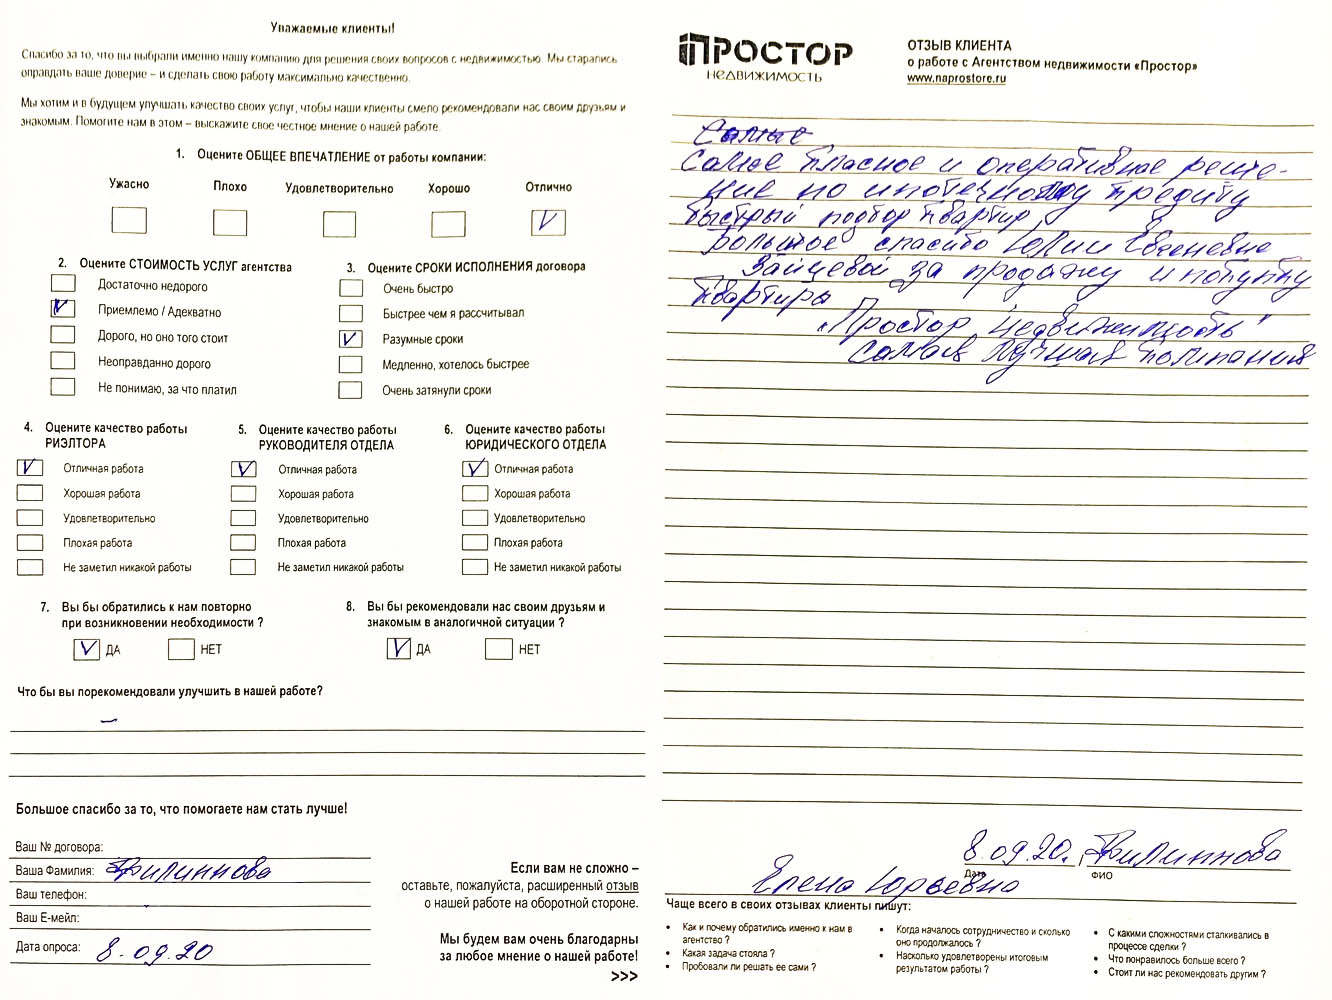 Уважаемые клиенты!
Спасибо за то, что вы выбрали именно нашу компанию для решения своих вопросов с недвижимостью. Мы старались
оправдать ваше доверие – и сделать свою работу максимально качественно.
Мы хотим и в будущем улучшать качество своих услуг, чтобы наши клиенты смело рекомендовали нас своим друзьям и
знакомым. Помогите нам в этом – выскажите свое честное мнение о нашей работе.
1. Оцените ОБЩЕЕ ВПЕЧАТЛЕНИЕ от работы компании:
Ужасно Плохо Удовлетворительно Хорошо Отлично
2. Оцените СТОИМОСТЬ УСЛУГ агентства
Достаточно недорого
Приемлемо / Адекватно
Дорого, но оно того стоит
Неоправданно дорого
Не понимаю, за что платил
3. Оцените СРОКИ ИСПОЛНЕНИЯ договора
Очень быстро
Быстрее чем я рассчитывал
Разумные сроки
Медленно, хотелось быстрее
Очень затянули сроки
4. Оцените качество работы
РИЭЛТОРА
Отличная работа
Хорошая работа
Удовлетворительно
Плохая работа
Не заметил никакой работы
5. Оцените качество работы
РУКОВОДИТЕЛЯ ОТДЕЛА
Отличная работа
Хорошая работа
Удовлетворительно
Плохая работа
Не заметил никакой работы
6. Оцените качество работы
ЮРИДИЧЕСКОГО ОТДЕЛА
Отличная работа
Хорошая работа
Удовлетворительно
Плохая работа
Не заметил никакой работы
7. Вы бы обратились к нам повторно
при возникновении необходимости ?
ДА НЕТ
8. Вы бы рекомендовали нас своим друзьям и
знакомым в аналогичной ситуации ?
ДА НЕТ
Что бы вы порекомендовали улучшить в нашей работе?
–
Большое спасибо за то, что помогаете нам стать лучше!
Ваш № договора:
Ваша Фамилия: Филиннова
Ваш телефон:
Ваш Е-мейл:
Дата опроса: 8.09.20
Если вам не сложно –
оставьте, пожалуйста, расширенный отзыв
о нашей работе на оборотной стороне.
Мы будем вам очень благодарны
за любое мнение о нашей работе!
>>>
ПРОСТОР
НЕДВИЖИМОСТЬ
ОТЗЫВ КЛИЕНТА
о работе с Агентством недвижимости «Простор»
www.naprostore.ru
Самые
Самое класное и оперативное реше-
ние по ипотечному кредиту
быстрый подбор квартир
Большое спасибо Юлии Евгеневне
Зайцевой за продажу и покупку
квартиры
"Простор недвижимость"
самая лучшая компания
8.09.20. Филиннова
Дата ФИО
Елена Юрьевна
Чаще всего в своих отзывах клиенты пишут:
• Как и почему обратились именно к нам в
агентство ?
• Какая задача стояла ?
• Пробовали ли решать ее сами ?
• Когда началось сотрудничество и сколько
оно продолжалось ?
• Насколько удовлетворены итоговым
результатом работы ?
• С какими сложностями сталкивались в
процессе сделки ?
• Что понравилось больше всего ?
• Стоит ли нас рекомендовать другим ?